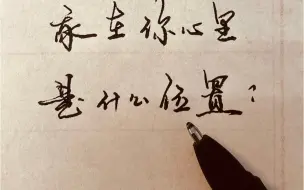 我在你心里
是什么位置?